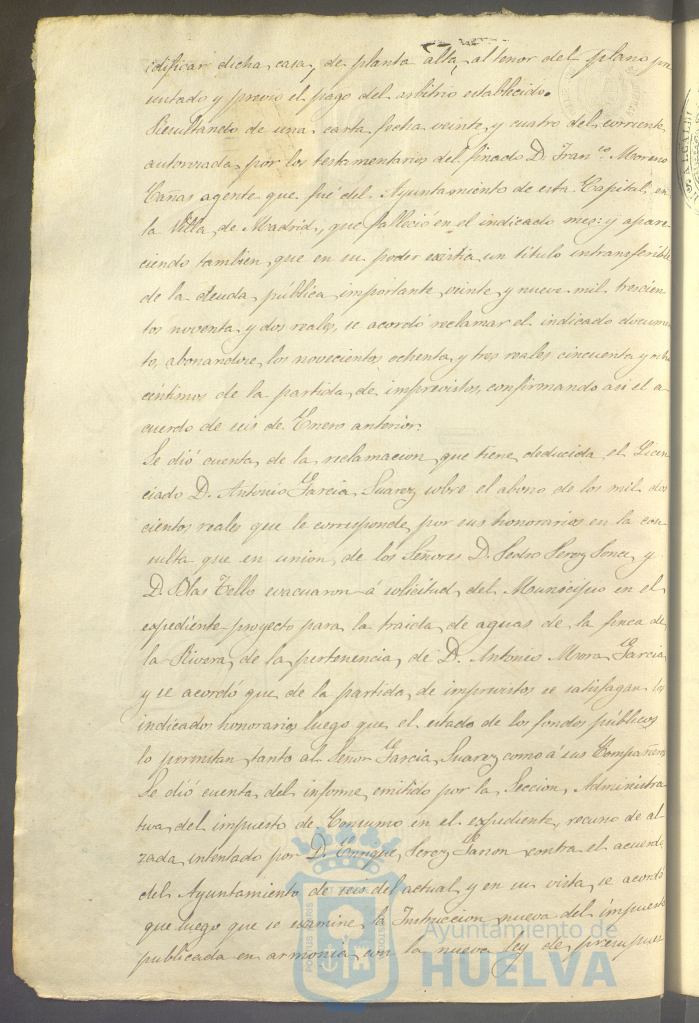 edificar dicha casa, de planta alta, al tenor del plano pre
sentado y previo el pago del arbitrio establecido.
Resultando de una carta fecha veinte y cuatro del corriente
autorizada por los testamentarios del finado D. Fran.co Moreno
Cañas agente que fué del Ayuntamiento de esta Capital en
la Villa de Madrid, que falleció en el indicado mes: y apare-
ciendo tambien, que en su poder existia un título intransferible
de la deuda pública importante veinte y nueve mil trescien
tos noventa y dos reales, se acordó reclamar el indicado documen
to, abonandose los novecientos ochenta y tres reales cincuenta y
céntimos de la partida de imprevistos, confirmando asi el a
cuerdo de seis de Enero anterior.
Se dió cuenta de la reclamacion que tiene deducida el Licen
ciado D. Antonio Garcia Suarez sobre el abono de los mil dos
cientos reales que le corresponde por sus honorarios en la con
sulta que en union de los Señores D. Pedro Perez y
D. Blas Tello evacuaron á solicitud del Municipio en el
espediente proyecto para la traida de aguas de la finca de
la Rivera de la pertenencia de D. Antonio Mora Garcia
y se acordó que de la partida de imprevistos se satisfagan los
indicados honorarios luego que el estado de los fondos públicos
lo permitan tanto al Señor Garcia Suarez como á sus Compañeros
Se dió cuenta del informe emitido por la Seccion Administra
tiva del impuesto de Consumo en el espediente, recurso de al
zada intentado por D. Enrique Perez contra el acuerdo
del Ayuntamiento de seis del actual y en su vista, se acordó
que luego que se examine la Instruccion nueva del impuesto
publicada en armonia con la nueva ley de presupues
Ayuntamiento de
HUELVA